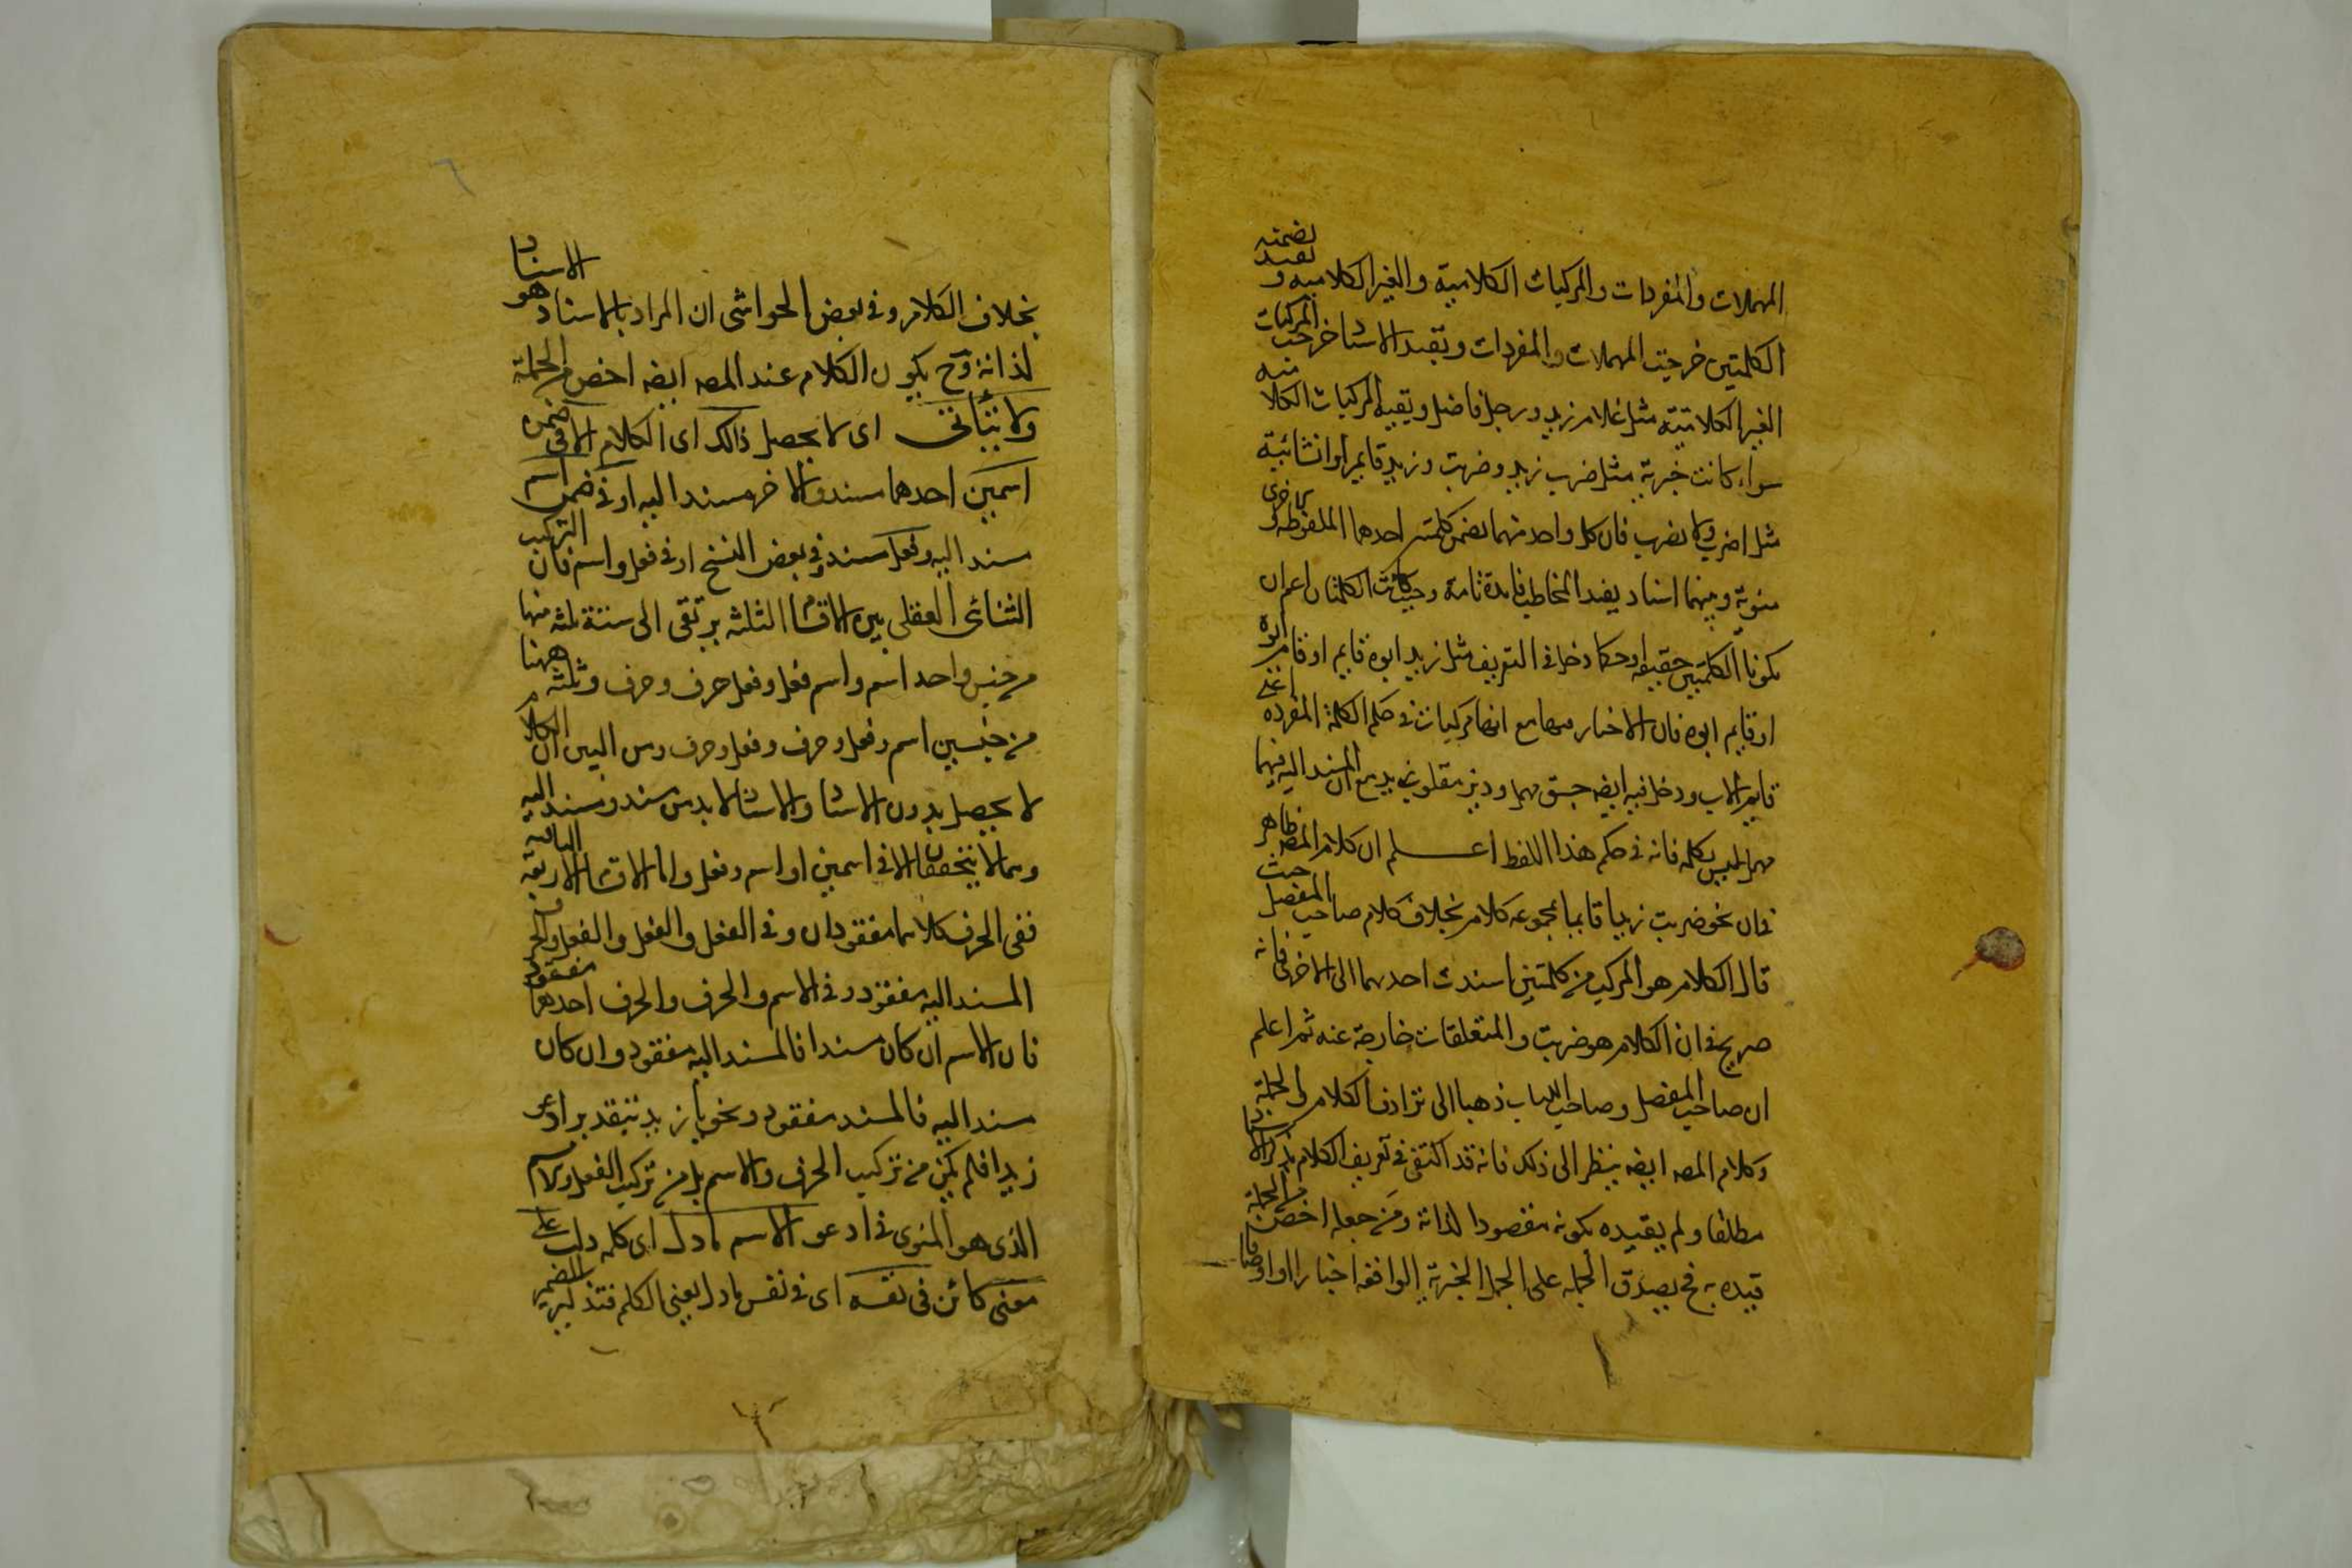 المهملات والمفردات والمركبات الكلامية والغير الكلامية و بقيد تضمنه
الكلمتين خرجت المهملات والمفردات وبقيد الاسناد خرجت المركبات
الغير الكلامية مثل غلام زيد ورجل فاضل وبقيت المركبات الكلامية
سواء كانت خبرية مثل ضرب زيد وضربت وزيد قايم او انشائية
مثل اضرب ولا تضرب فان كل واحد منهما تضمن كلمتين احدهما الملفوظه و الاخرى
منوية وبينهما اسناد يفيد المخاطب فايدة تامة وحيث كانت الكلمتان اعم ان
يكونا الكلمتين حقيقة او حكما دخل في التعريف مثل زيد ابوه قايم او قام ابوه
او قايم ابوه فان الاخبار فيها مع انها مركبات في حكم الكلمة المفرده اعني
قايم الاب ودخل فيه ايضه جسق مهمل وديز مقلوب زيد مع ان المسند اليه فيهما
مهمل ليس بكلمه فانه في حكم هذا اللفظ اعلم ان كلام المصه ظاهر
في ان نحو ضربت زيدا قايما بمجموعه كلام بخلاف كلام صاحب المفصل حيث
قال الكلام هو المركب من كلمتين اسندت احديهما الى الاخرى فانه
صريح في ان الكلام هو ضربت والمتعلقات خارجة عنه ثم اعلم
ان صاحب المفصل وصاحب اللباب ذهبا الى ترادف الكلام والجملة
وكلام المصه ايضه ينظر الى ذلك فانه قد اكتفى في تعريف الكلام بذكر الاسناد
مطلقا ولم يقيده بكونه مقصودا لذاته ومن جعله اخص من الجملة
قيده به فح يصدق الجمله على الجمل الخبرية الواقعه اخبارا او اوصافا
بخلاف الكلام وفي بعض الحواشى ان المراد بالاسناد هو الاسناد
لذاته وح يكون الكلام عند المصه ايضه اخص من الجملة
ولا يتأتى اى لا يحصل ذالك اى الكلام الا في ضمن
اسمين احدهما مسند والاخر مسند اليه او في ضمن اسم
مسند اليه وفعل مسند وفي بعض النسخ او في فعل واسم فان التركيب
الثنائى العقلى بين الاقسام الثلثه يرتقى الى ستة ثلثه منها
من جنس واحد اسم واسم فعل وفعل حرف وحرف وثلثة منها
من جنسين اسم وفعل وحرف وفعل وحرف ومن البين ان الكلام
لا يحصل بدون الاسناد والاسناد لا بد من مسند ومسند اليه
وهما لا يتحققان الا في اسمين او اسم وفعل واما الاقسام الاربعة الباقيه
ففى الحرف كلاهما مفقودان وفي الفعل والفعل والفعل والحرف
المسند اليه مفقود وفي الاسم والحرف والحرف احدهما مفقود
فان الاسم ان كان مسندا فالمسند اليه مفقود وان كان
مسند اليه فالمسند مفقود ونحو يا زيد بتقدير ادعو
زيدا فلم يكن من تركيب الحرف والاسم بل من تركيب الفعل والاسم
الذى هو المنوى في ادعو الاسم ما دل اى كلمه دلت على
معنى كائن فى نفسه اى في نفس ما دل يعنى الكلمه فتذكير الضمير